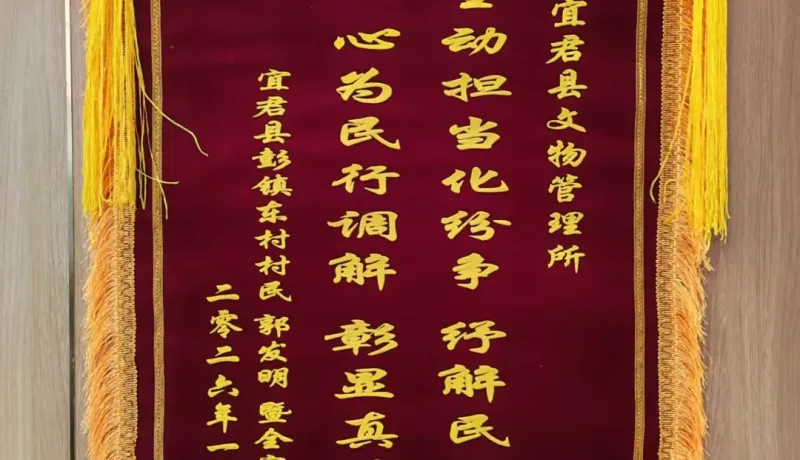 宜君县文物管理所
主动担当化纷争 纾解民
心为民行调解 彰显真
宜君县彭镇东村村民 郭发明 暨全家
二零二六年一